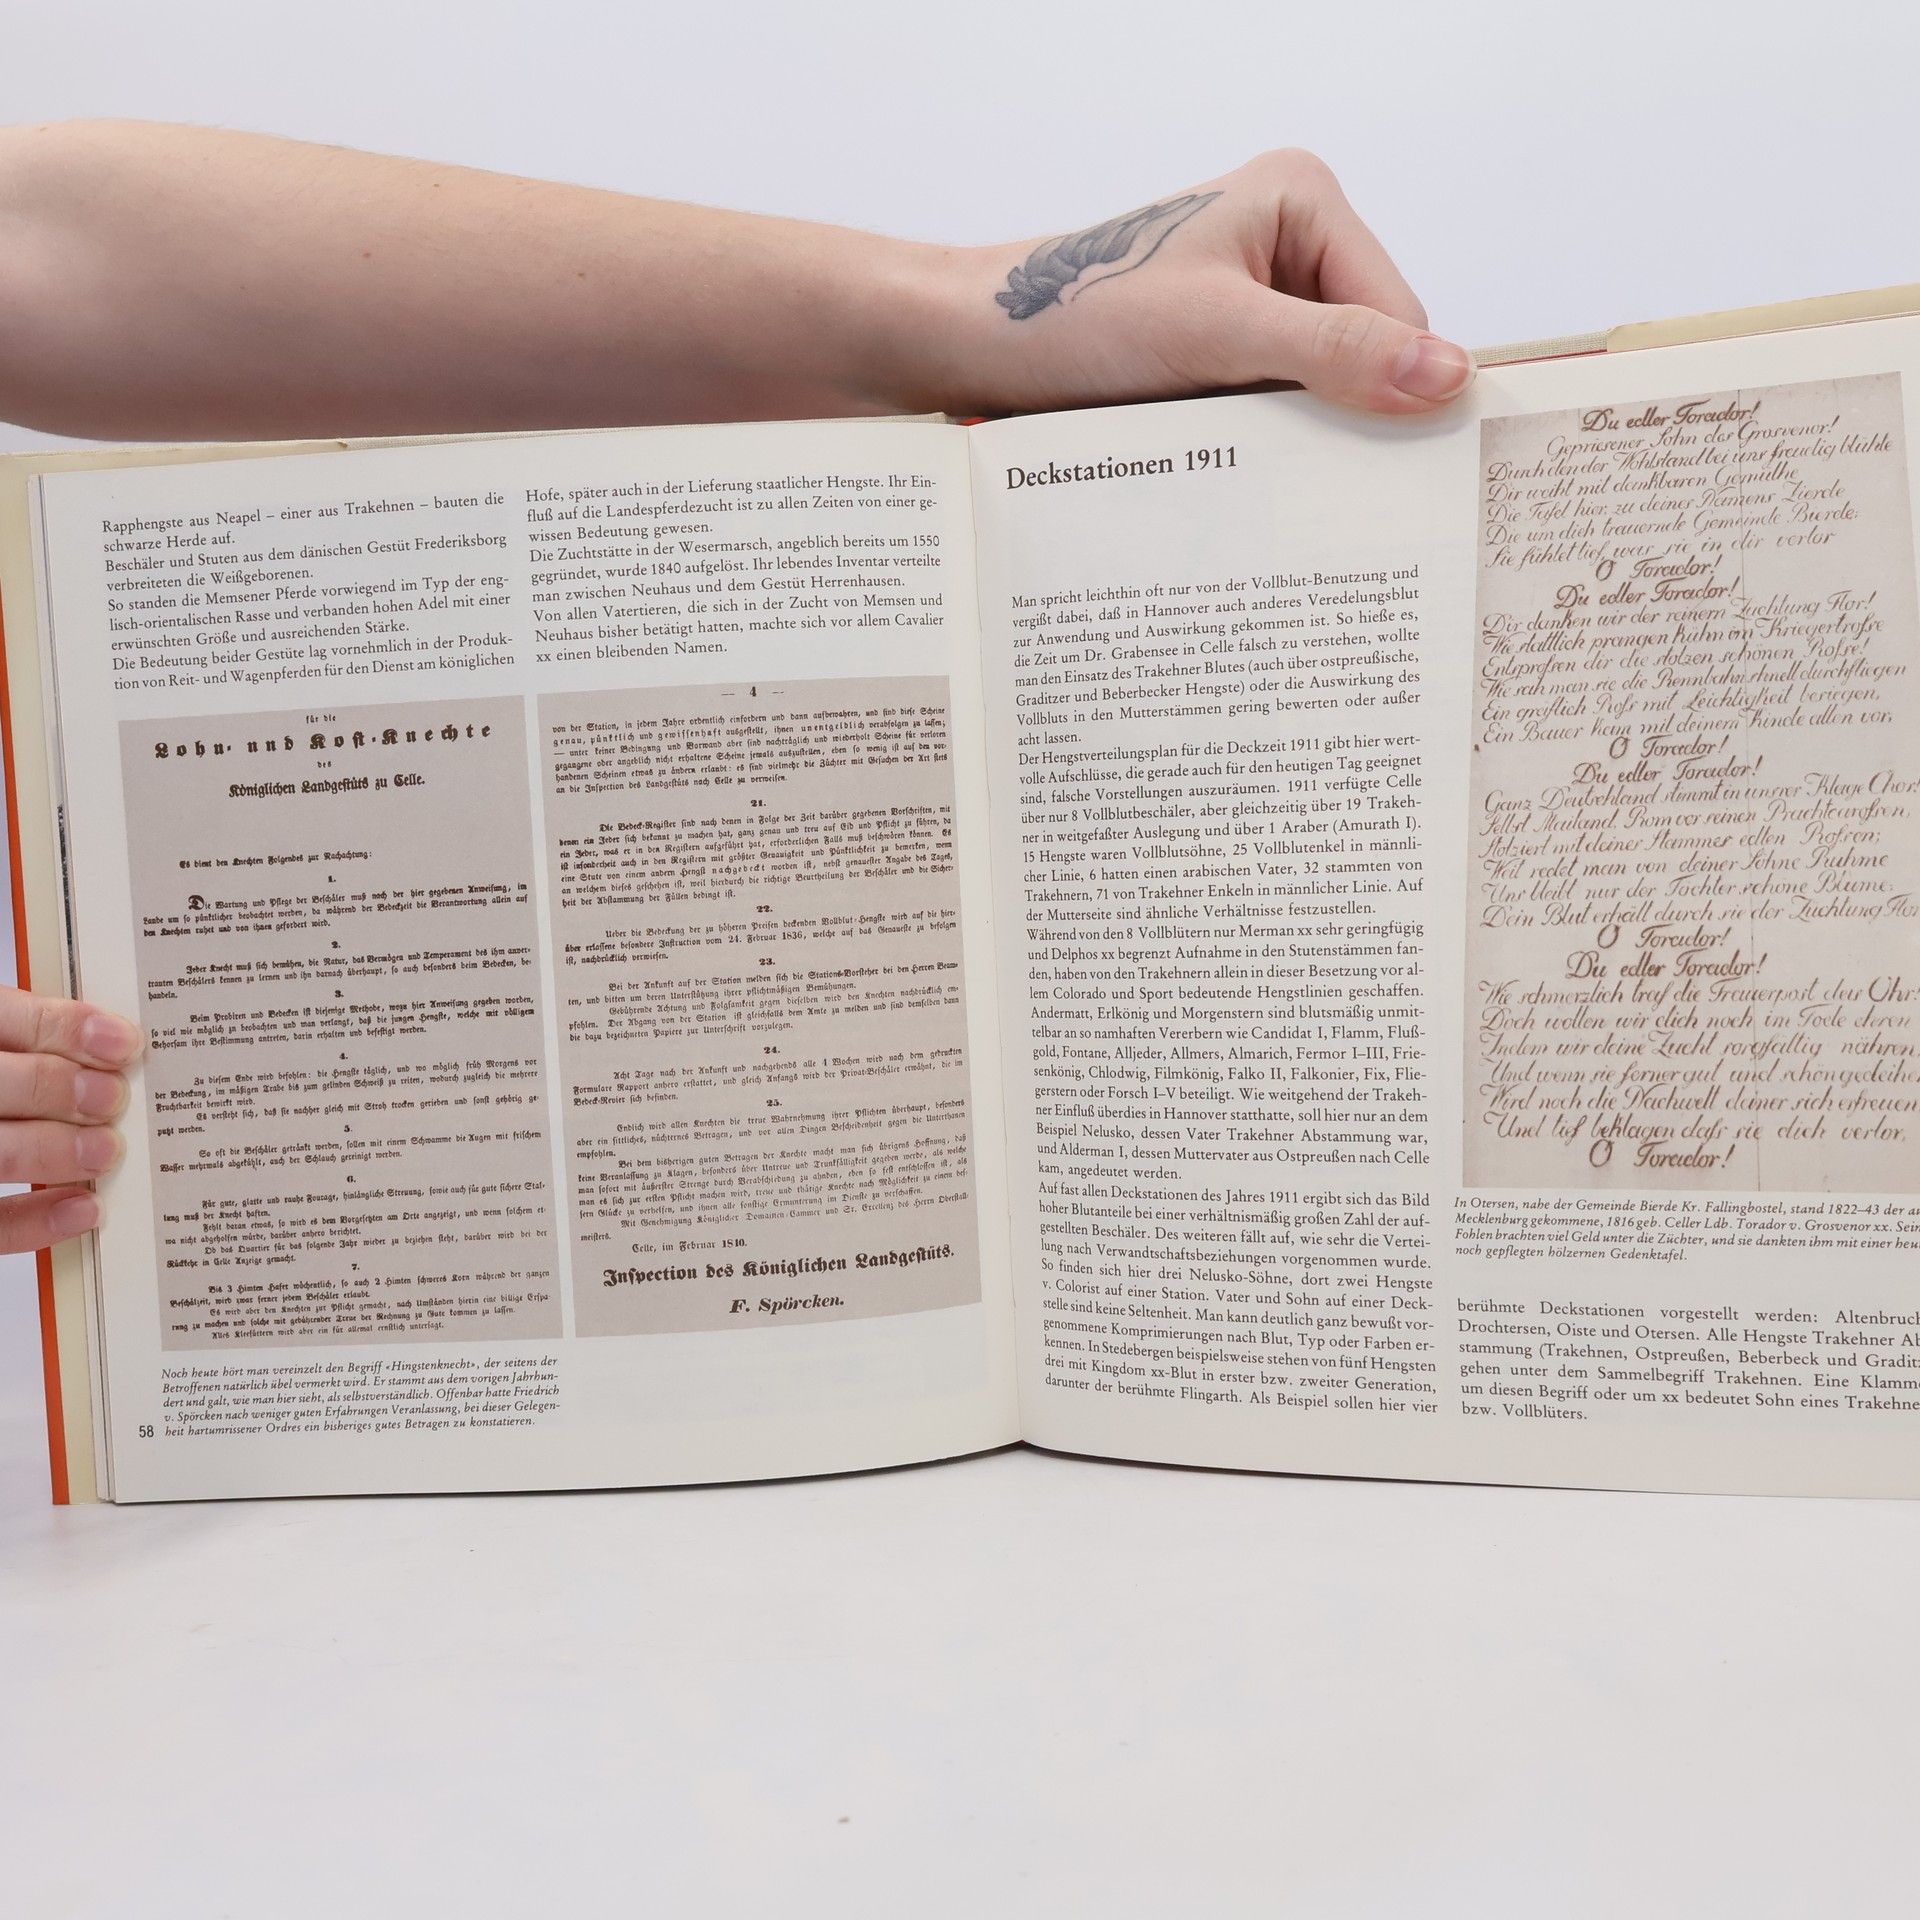 Rapphengste aus Neapel – einer aus Trakehnen – bauten die
schwarze Herde auf.
Beschäler und Stuten aus dem dänischen Gestüt Frederiksborg
verbreiteten die Weißgeborenen.
So standen die Memsener Pferde vorwiegend im Typ der eng-
lisch-orientalischen Rasse und verbanden hohen Adel mit einer
erwünschten Größe und ausreichenden Stärke.
Die Bedeutung beider Gestüte lag vornehmlich in der Produk-
tion von Reit- und Wagenpferden für den Dienst am königlichen
Hofe, später auch in der Lieferung staatlicher Hengste. Ihr Ein-
fluß auf die Landespferdezucht ist zu allen Zeiten von einer ge-
wissen Bedeutung gewesen.
Die Zuchtstätte in der Wesermarsch, angeblich bereits um 1550
gegründet, wurde 1840 aufgelöst. Ihr lebendes Inventar verteilte
man zwischen Neuhaus und dem Gestüt Herrenhausen.
Von allen Vatertieren, die sich in der Zucht von Memsen und
Neuhaus bisher betätigt hatten, machte sich vor allem Cavalier
xx einen bleibenden Namen.
für die
Lohn- und Kost-Knechte
des
Königlichen Landgestüts zu Celle.
Es dient den Knechten Folgendes zur Nachachtung:
1.
Die Wartung und Pflege der Beschäler muß nach der hier gegebenen Anweisung, im
Lande um so pünktlicher beobachtet werden, da während der Bedeckzeit die Verantwortung allein auf
den Knechten ruhet und von ihnen gefordert wird.
2.
Jeder Knecht muß sich bemühen, die Natur, das Vermögen und Temperament des ihm anver-
trauten Beschälers kennen zu lernen und ihn darnach überhaupt, so auch besonders beim Bedecken, be-
handeln.
3.
Beim Probiren und Bedecken ist diejenige Methode, wozu hier Anweisung gegeben worden,
so viel wie möglich zu beobachten und man verlangt, daß die jungen Hengste, welche mit völligem
Gehorsam ihre Bestimmung antreten, darin erhalten und befestigt werden.
4.
Zu diesem Ende wird befohlen: die Hengste täglich, und wo möglich früh Morgens vor
der Bedeckung, im mäßigen Trabe bis zum gelinden Schweiß zu reiten, wodurch zugleich die mehrere
Fruchtbarkeit bewirkt wird.
Es versteht sich, daß sie nachher gleich mit Stroh trocken gerieben und sonst gehörig ge-
putzt werden.
5.
So oft die Beschäler getränkt werden, sollen mit einem Schwamme die Augen mit frischem
Wasser mehrmals abgekühlt, auch der Schlauch gereinigt werden.
6.
Für gute, glatte und rauhe Fourage, hinlängliche Streuung, sowie auch für gute sichere Stal-
lung muß der Knecht haften.
Fehlt daran etwas, so wird es dem Vorgesetzten am Orte angezeigt, und wenn solchem et-
wa nicht abgeholfen würde, darüber anhero berichtet.
Ob das Quartier für das folgende Jahr wieder zu beziehen steht, darüber wird bei der
Rückkehr in Celle Anzeige gemacht.
7.
Bis 3 Himten Hafer wöchentlich, so auch 2 Himten schweres Korn während der ganzen
Beschälzeit, wird zwar ferner jedem Beschäler erlaubt.
Es wird aber den Knechten zur Pflicht gemacht, nach Umständen hierin eine billige Erspa-
rung zu machen und solche mit gebührender Treue der Rechnung zu Gute kommen zu lassen.
Alles Kleefüttern wird aber ein für allemal ernstlich untersagt.
— 4 —
von der Station, in jedem Jahre ordentlich einfordern und dann aufbewahren, und sind diese Scheine
genau, pünktlich und gewissenhaft ausgestellt, ihnen unentgeldlich verabfolgen zu lassen;
— unter keiner Bedingung und Vorwand aber sind nachträglich und wiederholt Scheine für verloren
gegangene oder angeblich nicht erhaltene Scheine jemals auszustellen, eben so wenig ist auf den vor-
handenen Scheinen etwas zu ändern erlaubt: es sind vielmehr die Züchter mit Gesuchen der Art stets
an die Inspection des Landgestüts nach Celle zu verweisen.
21.
Die Bedeck-Register sind nach denen in Folge der Zeit darüber gegebenen Vorschriften, mit
denen ein Jeder sich bekannt zu machen hat, ganz genau und treu auf Eid und Pflicht zu führen, da
ein Jeder, was er in den Registern aufgeführt hat, erforderlichen Falls muß beschwören können. Es
ist insonderheit auch in den Registern mit größter Genauigkeit und Pünktlichkeit zu bemerken, wenn
eine Stute von einem andern Hengst nachgedeckt worden ist, nebst genauester Angabe des Tages,
an welchem dieses geschehen ist, weil hierdurch die richtige Beurtheilung der Beschäler und die Sicher-
heit der Abstammung der Füllen bedingt ist.
22.
Ueber die Bedeckung der zu höheren Preisen deckenden Vollblut-Hengste wird auf die hier-
über erlassene besondere Instruction vom 24. Februar 1836, welche auf das Genaueste zu befolgen
ist, nachdrücklich verwiesen.
23.
Bei der Ankunft auf der Station melden sich die Stations-Vorsteher bei den Herren Beam-
ten, und bitten um deren Unterstützung ihrer pflichtmäßigen Bemühungen.
Gebührende Achtung und Folgsamkeit gegen dieselben wird den Knechten nachdrücklich em-
pfohlen. Der Abgang von der Station ist gleichfalls dem Amte zu melden und sind demselben dann
die dazu bezeichneten Papiere zur Unterschrift vorzulegen.
24.
Acht Tage nach der Ankunft und nachgehends alle 4 Wochen wird nach dem gedruckten
Formulare Rapport anhero erstattet, und gleich Anfangs wird der Privat-Beschäler erwähnt, die im
Bedeck-Revier sich befinden.
25.
Endlich wird allen Knechten die treue Wahrnehmung ihrer Pflichten überhaupt, besonders
aber ein sittliches, nüchternes Betragen, und vor allen Dingen Bescheidenheit gegen die Unterthanen
empfohlen.
Bei dem bisherigen guten Betragen der Knechte macht man sich übrigens Hoffnung, daß
keine Veranlassung zu Klagen, besonders über Untreue und Trunkfälligkeit gegeben werde, als welche
man sofort mit äußerster Strenge durch Verabschiedung zu ahnden, eben so fest entschlossen ist, als
man es sich zur ersten Pflicht machen wird, treue und thätige Knechte nach Möglichkeit zu einem bes-
sern Glücke zu verhelfen, und ihnen alle sonstige Ermunterung im Dienste zu verschaffen.
Mit Genehmigung Königlicher Domainen-Cammer und Sr. Excellenz des Herrn Oberstall-
meisters.
Celle, im Februar 1840.
Inspection des Königlichen Landgestüts.
F. Spörcken.
Noch heute hört man vereinzelt den Begriff «Hingstenknecht», der seitens der
Betroffenen natürlich übel vermerkt wird. Er stammt aus dem vorigen Jahrhun-
dert und galt, wie man hier sieht, als selbstverständlich. Offenbar hatte Friedrich
v. Spörcken nach weniger guten Erfahrungen Veranlassung, bei dieser Gelegen-
heit hartumrissener Ordres ein bisheriges gutes Betragen zu konstatieren.
58
Deckstationen 1911
Man spricht leichthin oft nur von der Vollblut-Benutzung und
vergißt dabei, daß in Hannover auch anderes Veredelungsblut
zur Anwendung und Auswirkung gekommen ist. So hieße es,
die Zeit um Dr. Grabensee in Celle falsch zu verstehen, wollte
man den Einsatz des Trakehner Blutes (auch über ostpreußische,
Graditzer und Beberbecker Hengste) oder die Auswirkung des
Vollbluts in den Mutterstämmen gering bewerten oder außer
acht lassen.
Der Hengstverteilungsplan für die Deckzeit 1911 gibt hier wert-
volle Aufschlüsse, die gerade auch für den heutigen Tag geeignet
sind, falsche Vorstellungen auszuräumen. 1911 verfügte Celle
über nur 8 Vollblutbeschäler, aber gleichzeitig über 19 Trakeh-
ner in weitgefaßter Auslegung und über 1 Araber (Amurath I).
15 Hengste waren Vollblutsöhne, 25 Vollblutenkel in männli-
cher Linie, 6 hatten einen arabischen Vater, 32 stammten von
Trakehnern, 71 von Trakehner Enkeln in männlicher Linie. Auf
der Mutterseite sind ähnliche Verhältnisse festzustellen.
Während von den 8 Vollblütern nur Merman xx sehr geringfügig
und Delphos xx begrenzt Aufnahme in den Stutenstämmen fan-
den, haben von den Trakehnern allein in dieser Besetzung vor al-
lem Colorado und Sport bedeutende Hengstlinien geschaffen.
Andermatt, Erlkönig und Morgenstern sind blutsmäßig unmit-
telbar an so namhaften Vererbern wie Candidat I, Flamm, Fluß-
gold, Fontane, Alljeder, Allmers, Almarich, Fermor I–III, Frie-
senkönig, Chlodwig, Filmkönig, Falko II, Falkonier, Fix, Flie-
gerstern oder Forsch I–V beteiligt. Wie weitgehend der Trakeh-
ner Einfluß überdies in Hannover statthatte, soll hier nur an dem
Beispiel Nelusko, dessen Vater Trakehner Abstammung war,
und Alderman I, dessen Muttervater aus Ostpreußen nach Celle
kam, angedeutet werden.
Auf fast allen Deckstationen des Jahres 1911 ergibt sich das Bild
hoher Blutanteile bei einer verhältnismäßig großen Zahl der auf-
gestellten Beschäler. Des weiteren fällt auf, wie sehr die Vertei-
lung nach Verwandtschaftsbeziehungen vorgenommen wurde.
So finden sich hier drei Nelusko-Söhne, dort zwei Hengste
v. Colorist auf einer Station. Vater und Sohn auf einer Deck-
stelle sind keine Seltenheit. Man kann deutlich ganz bewußt vor-
genommene Komprimierungen nach Blut, Typ oder Farben er-
kennen. In Stedebergen beispielsweise stehen von fünf Hengsten
drei mit Kingdom xx-Blut in erster bzw. zweiter Generation,
darunter der berühmte Flingarth. Als Beispiel sollen hier vier
Du edler Torador!
Gepriesener Sohn das Grosvenor!
Durch den der Wohlstand bei uns freudig blühte
Dir weiht mit dankbaren Gemüthe
Die Tafel hier, zu deines Namens Zierde
Die um dich trauernde Gemeinde Bierde:
Sie fühlet tief, was sie in dir verlor
O Torador!
Du edler Torador!
Dir danken wir der reinern Züchtung Flor!
Wie stattlich prangen kühn im Kriegertroße
Entsproßen dir die stolzen schönen Roße!
Wie sah man sie die Rennbahn schnell durchfliegen
Ein gräflich Roß mit Leichtigkeit besiegen,
Ein Bauer kam mit deinem Kinde allen vor,
O Torador!
Du edler Torador!
Ganz Deutschland stimmt in unsrer Klage Chor!
Selbst Mailand, Rom vor seinen Prachtcaroßen,
Stolziert mit deiner Stammer edlen Roßen;
Weil redet man von deiner Söhne Ruhme
Uns bleibt nur der Töchter schöne Blume:
Dein Blut erhält durch sie der Züchtung Flor
O Torador!
Du edler Torador!
Wie schmerzlich traf die Trauerpost das Ohr!
Doch wollen wir dich noch im Tode ehren
Indem wir deine Zucht sorgfältig nähren,
Und wenn sie ferner gut und schön gedeihen
Wird noch die Nachwelt deiner sich erfreuen
Und tief beklagen daß sie dich verlor,
O Torador!
In Otersen, nahe der Gemeinde Bierde Kr. Fallingbostel, stand 1822–43 der au
Mecklenburg gekommene, 1816 geb. Celler Ldb. Torador v. Grosvenor xx. Sein
Fohlen brachten viel Geld unter die Züchter, und sie dankten ihm mit einer heu
noch gepflegten hölzernen Gedenktafel.
berühmte Deckstationen vorgestellt werden: Altenbruch
Drochtersen, Oiste und Otersen. Alle Hengste Trakehner Ab
stammung (Trakehnen, Ostpreußen, Beberbeck und Graditz
gehen unter dem Sammelbegriff Trakehnen. Eine Klamme
um diesen Begriff oder um xx bedeutet Sohn eines Trakehne
bzw. Vollblüters.